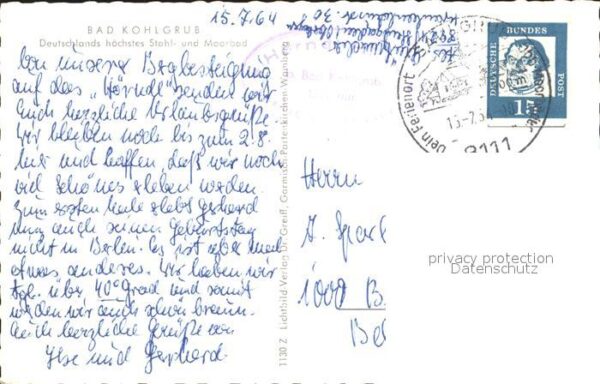 BAD KOHLGRUB
Deutschlands höchstes Stahl- und Moorbad
15.7.64
Von unserer Bergbesteigung
auf das "Hörnle" senden wir
Euch herzliche Urlaubsgrüße.
Wir bleiben noch bis zum 2.8.
hier und hoffen, daß wir noch
viel Schönes erleben werden.
Zum ersten Male erlebt Gerhard
nun auch seinen Geburtstag
nicht in Berlin. Es ist aber mal
etwas anderes. Wir haben hier
tgl. über 40° Grad und somit
werden wir auch schön braun.
Euch herzliche Grüße von
Ilse und Gerhard.
1130 Z Lichtbild-Verlag Dr. Greifl, Garmisch-Partenkirchen-Wamberg
Bad Kohlgrub
Dein Ferienort
8111
DEUTSCHE BUNDESPOST
15
Herrn
A.
1000 B
Be
privacy protection
Datenschutz